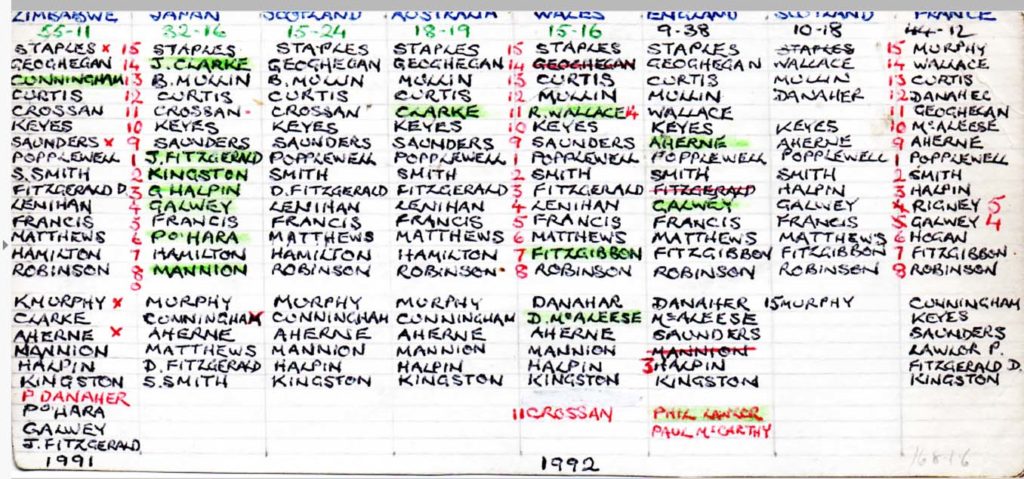 ZIMBABWE JAPAN SCOTLAND AUSTRALIA WALES ENGLAND SCOTLAND FRANCE
55-11 32-16 15-24 18-19 15-16 9-38 10-18 44-12
STAPLES x 15 STAPLES STAPLES STAPLES 15 STAPLES STAPLES STAPLES 15 MURPHY
GEOGHEGAN 14 J.CLARKE GEOGHEGAN GEOGHEGAN 14 GEOGHEGAN GEOGHEGAN WALLACE 14 WALLACE
CUNNINGHAM 13 B.MULLIN B.MULLIN MULLIN 13 CURTIS CURTIS MULLIN 13 CURTIS
CURTIS 12 CURTIS CURTIS CURTIS 12 MULLIN MULLIN DANAHER 12 DANAHER
CROSSAN 11 CROSSAN CROSSAN CLARKE 11 R.WALLACE 14 WALLACE 11 GEOGHEGAN
KEYES 10 KEYES KEYES KEYES 10 KEYES KEYES KEYES 10 McALEESE
SAUNDERS x 9 SAUNDERS SAUNDERS SAUNDERS 9 SAUNDERS AHERNE AHERNE 9 AHERNE
POPPLEWELL 1 J.FITZGERALD POPPLEWELL POPPLEWELL 1 POPPLEWELL POPPLEWELL POPPLEWELL 1 POPPLEWELL
S.SMITH 2 KINGSTON SMITH SMITH 2 SMITH SMITH SMITH 2 SMITH
FITZGERALD D. 3 G HALPIN D.FITZGERALD FITZGERALD 3 FITZGERALD FITZGERALD HALPIN 3 HALPIN
LENIHAN 4 GALWEY LENIHAN LENIHAN 4 LENIHAN GALWEY GALWEY 4 RIGNEY 5
FRANCIS 5 FRANCIS FRANCIS FRANCIS 5 FRANCIS FRANCIS FRANCIS 5 GALWEY 4
MATTHEWS 6 P O'HARA MATTHEWS MATTHEWS 6 MATTHEWS MATTHEWS MATTHEWS 6 HOGAN
HAMILTON 7 HAMILTON HAMILTON HAMILTON 7 FITZGIBBON FITZGIBBON FITZGIBBON 7 FITZGIBBON
ROBINSON 8 MANNION ROBINSON ROBINSON 8 ROBINSON ROBINSON ROBINSON 8 ROBINSON
8
K MURPHY x MURPHY MURPHY MURPHY DANAHAR DANAHER 15 MURPHY CUNNINGHAM
CLARKE CUNNINGHAM x CUNNINGHAM CUNNINGHAM D.McALEESE McALEESE KEYES
AHERNE x AHERNE AHERNE AHERNE AHERNE SAUNDERS SAUNDERS
MANNION MATTHEWS MANNION MANNION MANNION MANNION LAWLOR P.
HALPIN D.FITZGERALD HALPIN HALPIN HALPIN 3 HALPIN FITZGERALD D.
KINGSTON S.SMITH KINGSTON KINGSTON KINGSTON KINGSTON KINGSTON
P DANAHER
P O'HARA 11 CROSSAN PHIL LAWLOR
GALWEY PAUL McCARTHY
J.FITZGERALD
1991 1992